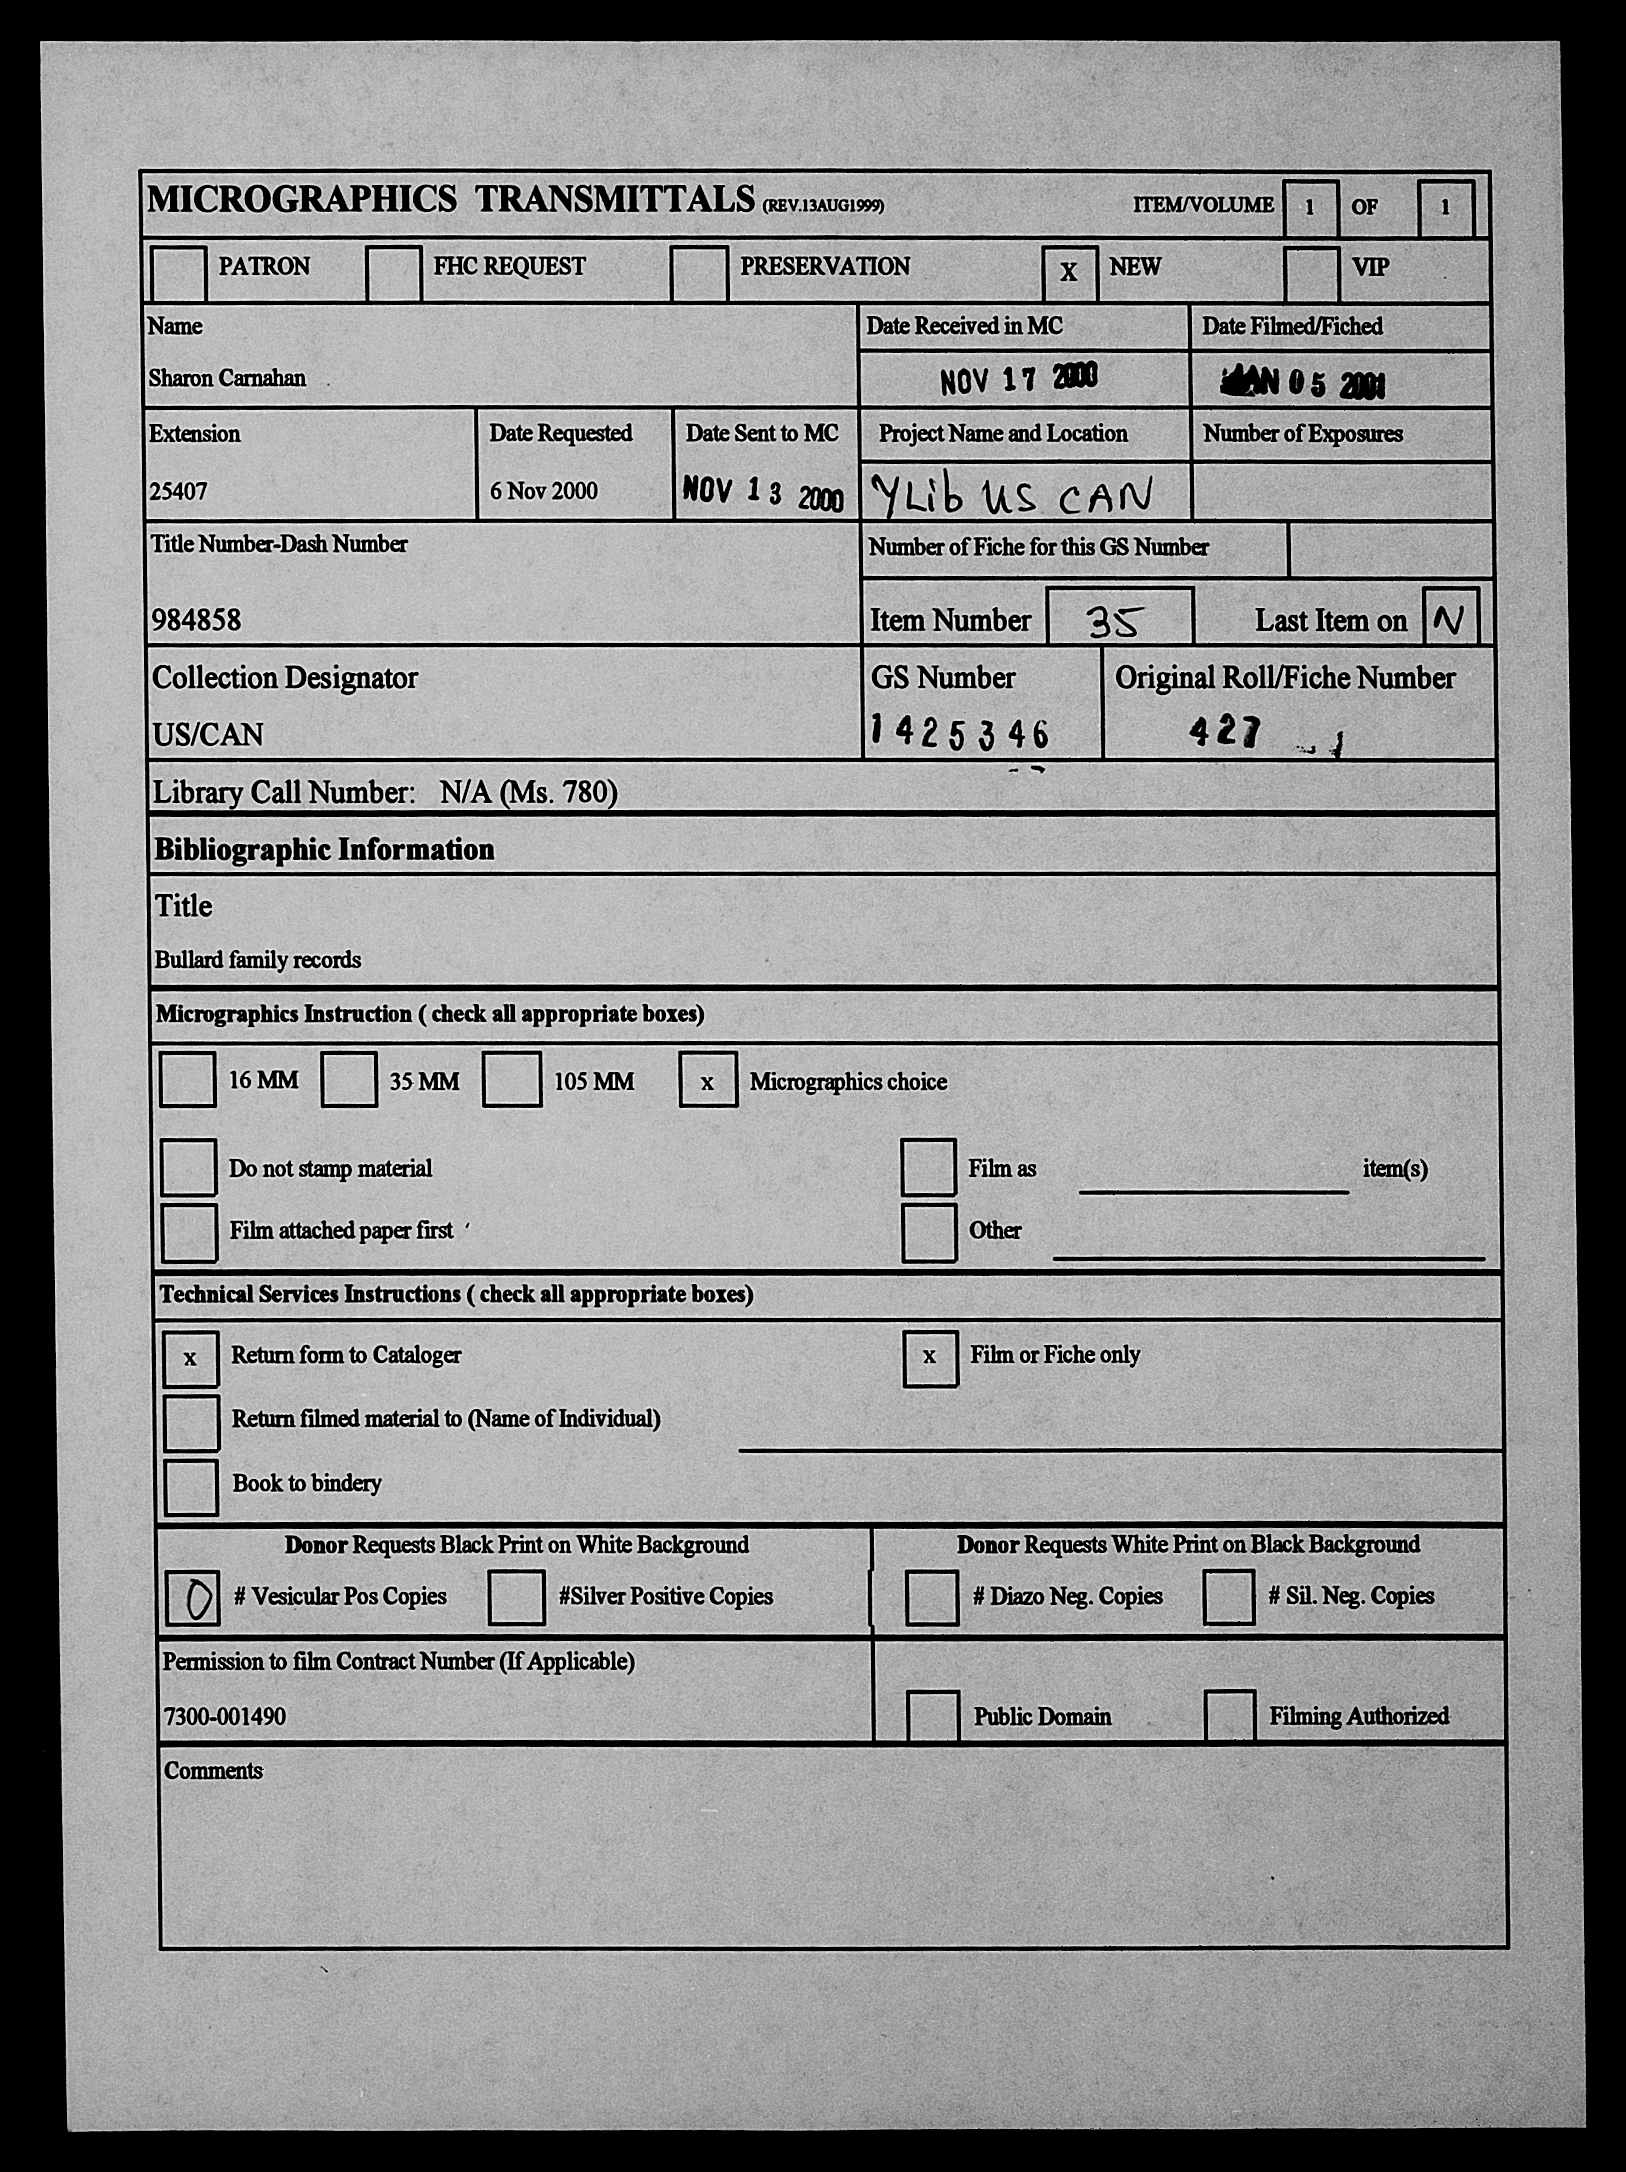 MICROGRAPHICS TRANSMITTALS (REV.13AUG1999) ITEM/VOLUME 1 OF 1
PATRON FHC REQUEST PRESERVATION X NEW VIP
Name Date Received in MC Date Filmed/Fiched
Sharon Carnahan NOV 17 2000 JAN 05 2001
Extension Date Requested Date Sent to MC Project Name and Location Number of Exposures
25407 6 Nov 2000 NOV 13 2000 YLib US CAN
Title Number-Dash Number Number of Fiche for this GS Number
984858 Item Number 35 Last Item on N
Collection Designator GS Number Original Roll/Fiche Number
US/CAN 1425346 427
Library Call Number: N/A (Ms. 780)
Bibliographic Information
Title
Bullard family records
Micrographics Instruction ( check all appropriate boxes)
16 MM 35 MM 105 MM x Micrographics choice
Do not stamp material Film as item(s)
Film attached paper first Other
Technical Services Instructions ( check all appropriate boxes)
x Return form to Cataloger x Film or Fiche only
Return filmed material to (Name of Individual)
Book to bindery
Donor Requests Black Print on White Background Donor Requests White Print on Black Background
0 # Vesicular Pos Copies #Silver Positive Copies # Diazo Neg. Copies # Sil. Neg. Copies
Permission to film Contract Number (If Applicable)
7300-001490 Public Domain Filming Authorized
Comments